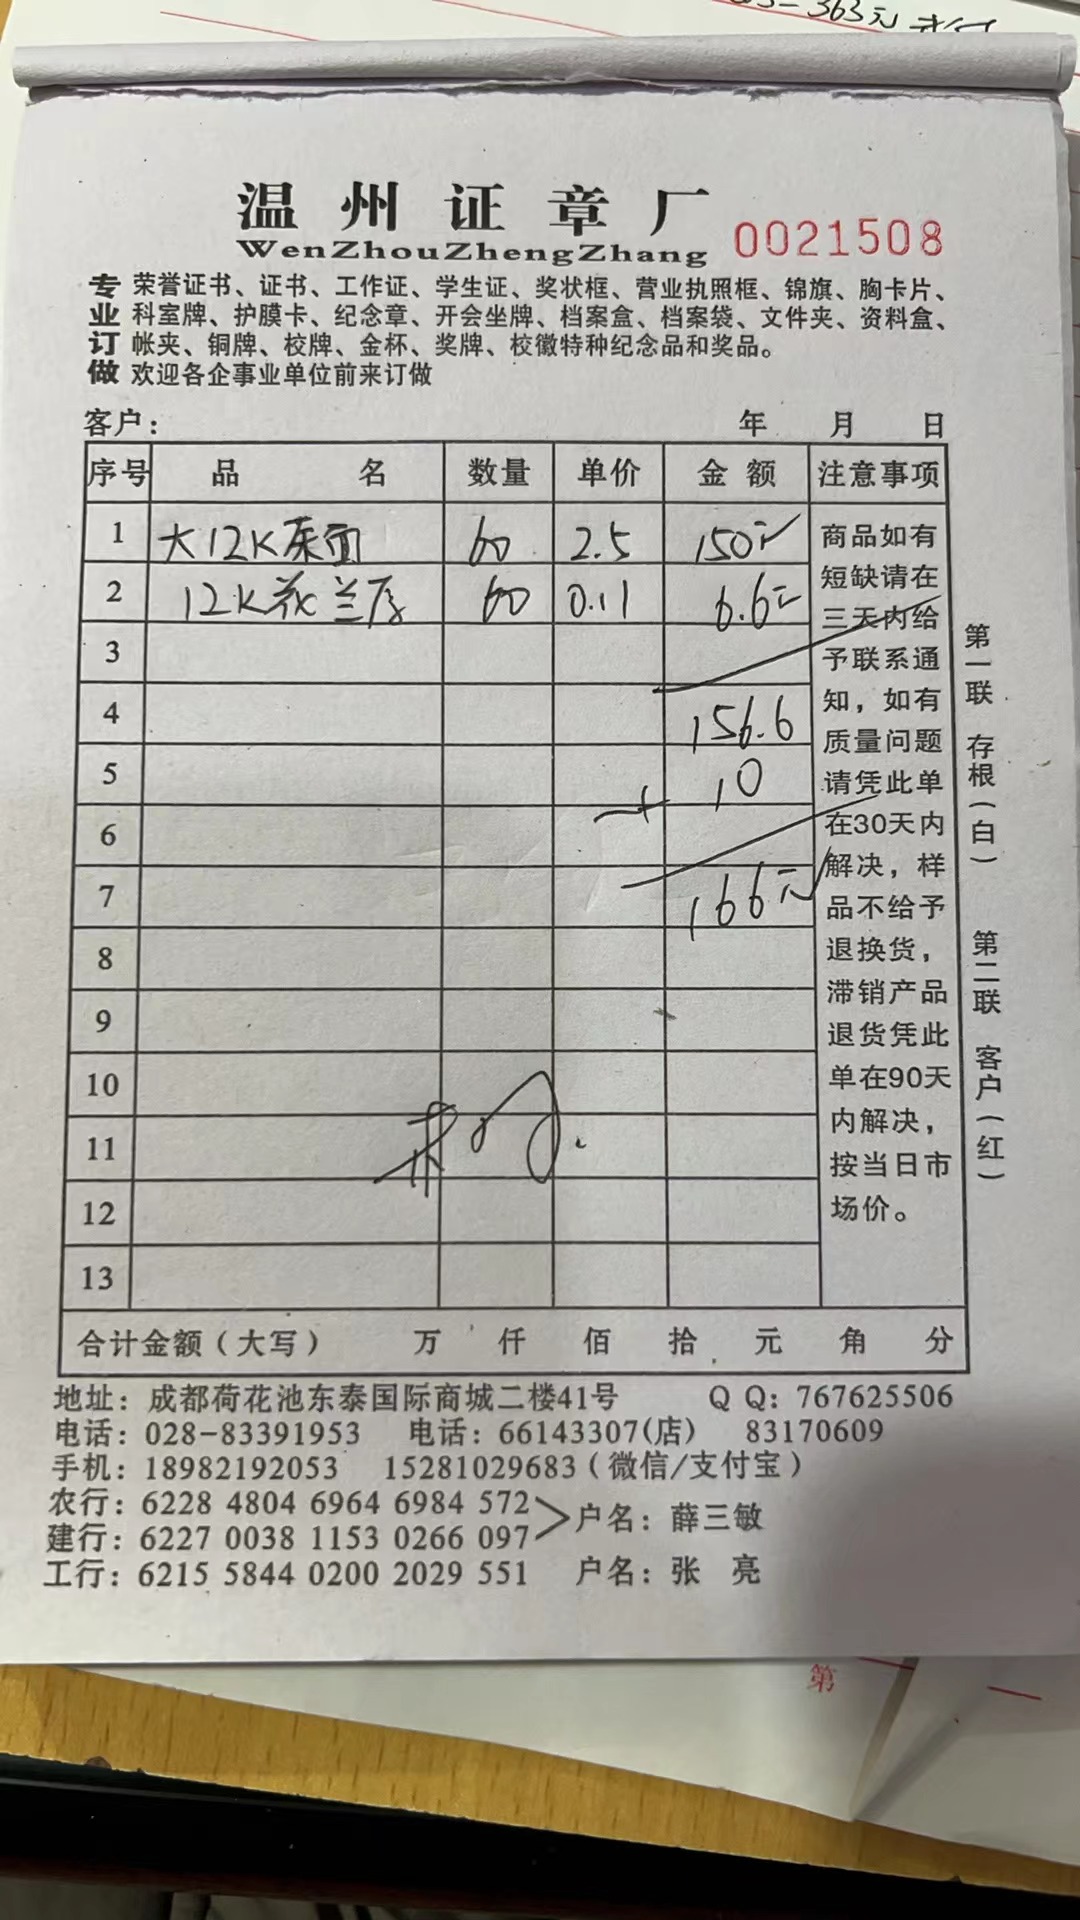 363元
温州证章厂
WenZhouZhengZhang 0021508
专业订做
荣誉证书、证书、工作证、学生证、奖状框、营业执照框、锦旗、胸卡片、
科室牌、护膜卡、纪念章、开会坐牌、档案盒、档案袋、文件夹、资料盒、
帐夹、铜牌、校牌、金杯、奖牌、校徽特种纪念品和奖品。
欢迎各企事业单位前来订做
客户： 年 月 日
序号 品 名 数量 单价 金额 注意事项
1 大12K 60 2.5 150元
2 12K花兰 60 0.11 6.6元
3
4 156.6
5 +10
6
7 166元
8
9
10
11
12
13
商品如有
短缺请在
三天内给
予联系通
知，如有
质量问题
请凭此单
在30天内
解决，样
品不给予
退换货，
滞销产品
退货凭此
单在90天
内解决，
按当日市
场价。
第一联 存根（白） 第二联 客户（红）
合计金额（大写） 万 仟 佰 拾 元 角 分
地址：成都荷花池东泰国际商城二楼41号 QQ：767625506
电话：028-83391953 电话：66143307(店) 83170609
手机：18982192053 15281029683（微信/支付宝）
农行：6228 4804 6964 6984 572
建行：6227 0038 1153 0266 097 户名：薛三敏
工行：6215 5844 0200 2029 551 户名：张 亮
第